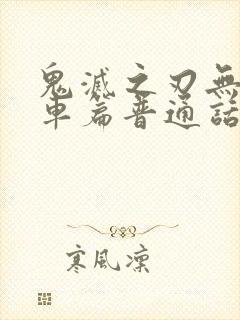 鬼滅之刃無
車篇普通話
寒風凜